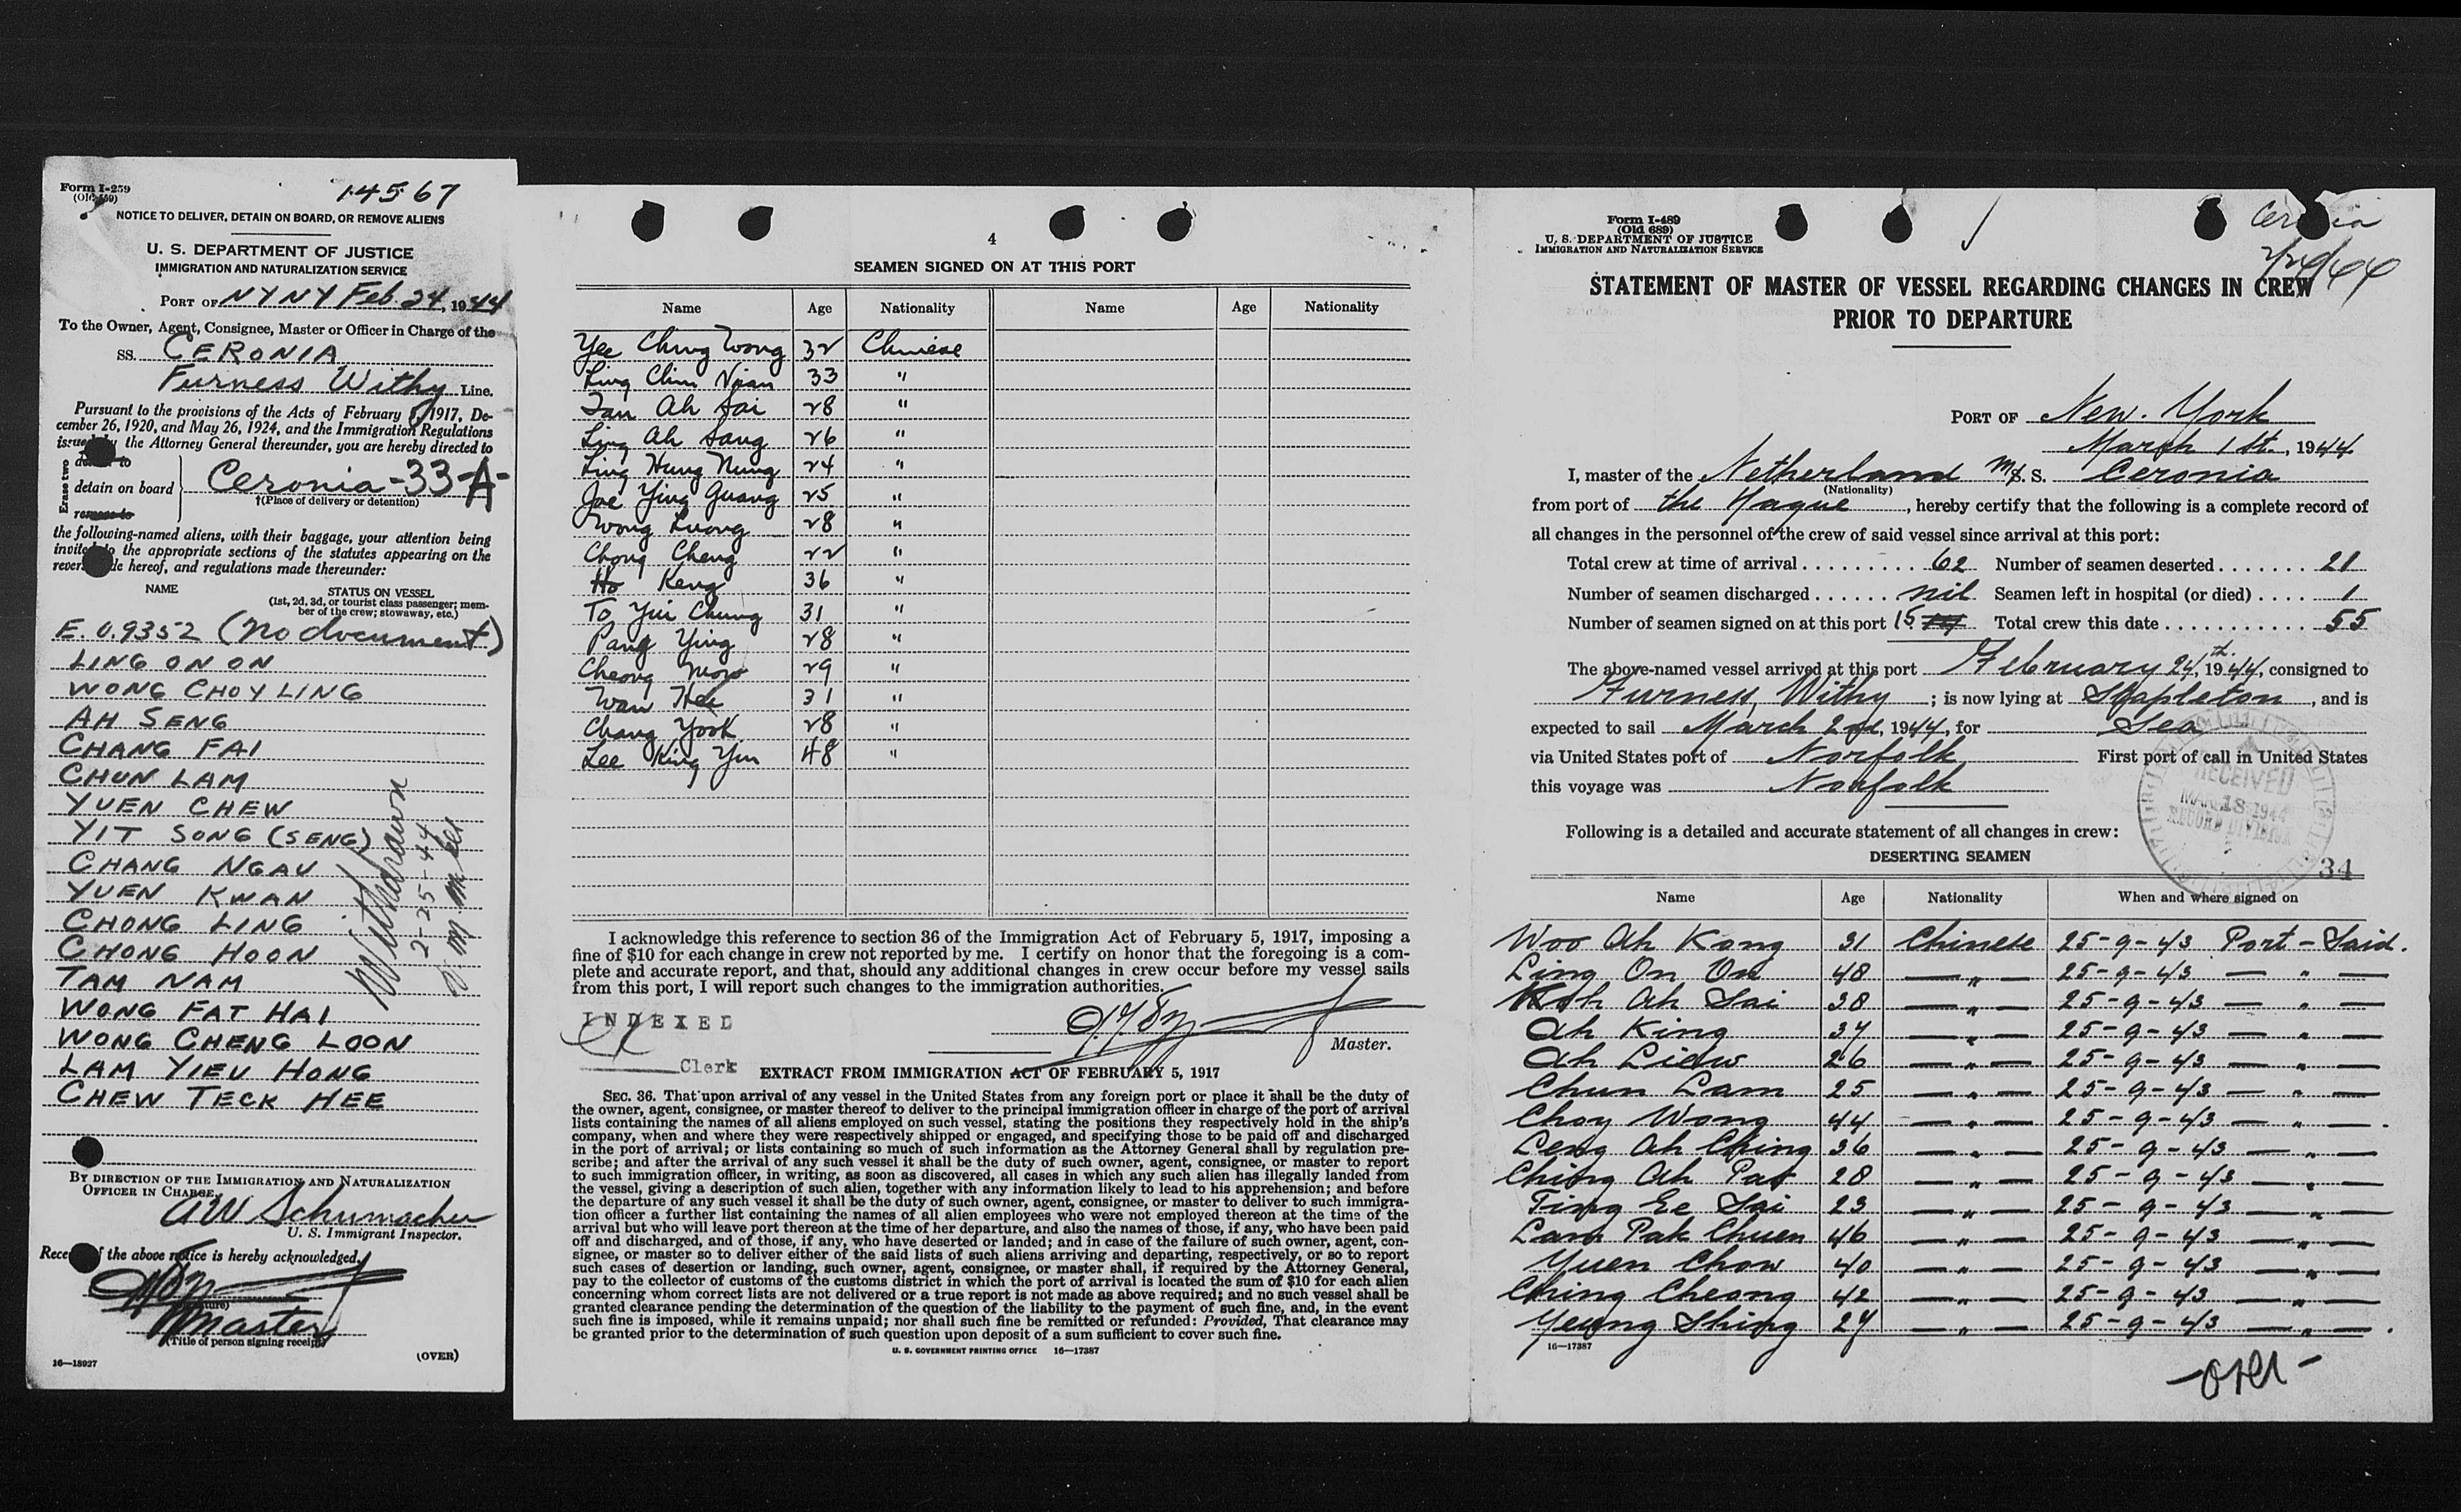 14567
Form I-259
(Old 559)
NOTICE TO DELIVER, DETAIN ON BOARD, OR REMOVE ALIENS
U. S. DEPARTMENT OF JUSTICE
IMMIGRATION AND NATURALIZATION SERVICE
PORT OF NYNY Feb. 24, 1944
To the Owner, Agent, Consignee, Master or Officer in Charge of the
SS. CERONIA
Furness Withy Line.
Pursuant to the provisions of the Acts of February 5, 1917, De-
cember 26, 1920, and May 26, 1924, and the Immigration Regulations
issued by the Attorney General thereunder, you are hereby directed to
Erase two
deliver to
detain on board
remove to
Ceronia-33-A-
†(Place of delivery or detention)
the following-named aliens, with their baggage, your attention being
invited to the appropriate sections of the statutes appearing on the
reverse side hereof, and regulations made thereunder:
NAME
STATUS ON VESSEL
(1st, 2d, 3d, or tourist class passenger; mem-
ber of the crew; stowaway, etc.)
E. O. 9352 (no document)
LING ON ON
WONG CHOY LING
AH SENG
CHANG FAI
CHUN LAM
YUEN CHEW
YIT SONG (SENG)
CHANG NGAU
YUEN KWAN
CHONG LING
CHONG HOON
TAM NAM
WONG FAT HAI
WONG CHENG LOON
LAM YIEU HONG
CHEW TECK HEE
Withdrawn
2-25-44
BY DIRECTION OF THE IMMIGRATION AND NATURALIZATION
OFFICER IN CHARGE.
AW Schumacher
U. S. Immigrant Inspector.
Receipt of the above notice is hereby acknowledged.
(Signature)
Master
(Title of person signing receipt)
16—18927
(OVER)
4
SEAMEN SIGNED ON AT THIS PORT
Name Age Nationality Name Age Nationality
Yee Ching Wong 32 Chinese
Ling Chin Nian 33 "
Tan Ah Sai 28 "
Ling Ah Sang 26 "
Ling Hung Nung 24 "
Joe Ying Guang 25 "
Wong Luong 28 "
Chong Cheng 22 "
Ho Keng 36 "
To Yui Chung 31 "
Pang Ying 28 "
Cheong Mow 29 "
Wan Hee 31 "
Chang Yook 28 "
Lee King Yin 48 "
I acknowledge this reference to section 36 of the Immigration Act of February 5, 1917, imposing a
fine of $10 for each change in crew not reported by me. I certify on honor that the foregoing is a com-
plete and accurate report, and that, should any additional changes in crew occur before my vessel sails
from this port, I will report such changes to the immigration authorities.
INDEXED
Clerk
Master.
EXTRACT FROM IMMIGRATION ACT OF FEBRUARY 5, 1917
SEC. 36. That upon arrival of any vessel in the United States from any foreign port or place it shall be the duty of
the owner, agent, consignee, or master thereof to deliver to the principal immigration officer in charge of the port of arrival
lists containing the names of all aliens employed on such vessel, stating the positions they respectively hold in the ship's
company, when and where they were respectively shipped or engaged, and specifying those to be paid off and discharged
in the port of arrival; or lists containing so much of such information as the Attorney General shall by regulation pre-
scribe; and after the arrival of any such vessel it shall be the duty of such owner, agent, consignee, or master to report
to such immigration officer, in writing, as soon as discovered, all cases in which any such alien has illegally landed from
the vessel, giving a description of such alien, together with any information likely to lead to his apprehension; and before
the departure of any such vessel it shall be the duty of such owner, agent, consignee, or master to deliver to such immigra-
tion officer a further list containing the names of all alien employees who were not employed thereon at the time of the
arrival but who will leave port thereon at the time of her departure, and also the names of those, if any, who have been paid
off and discharged, and of those, if any, who have deserted or landed; and in case of the failure of such owner, agent, con-
signee, or master so to deliver either of the said lists of such aliens arriving and departing, respectively, or so to report
such cases of desertion or landing, such owner, agent, consignee, or master shall, if required by the Attorney General,
pay to the collector of customs of the customs district in which the port of arrival is located the sum of $10 for each alien
concerning whom correct lists are not delivered or a true report is not made as above required; and no such vessel shall be
granted clearance pending the determination of the question of the liability to the payment of such fine, and, in the event
such fine is imposed, while it remains unpaid; nor shall such fine be remitted or refunded: Provided, That clearance may
be granted prior to the determination of such question upon deposit of a sum sufficient to cover such fine.
U. S. GOVERNMENT PRINTING OFFICE 16—17387
Form I-489
(Old 689)
U. S. DEPARTMENT OF JUSTICE
IMMIGRATION AND NATURALIZATION SERVICE
Ceronia
2/24/44
STATEMENT OF MASTER OF VESSEL REGARDING CHANGES IN CREW
PRIOR TO DEPARTURE
PORT OF New. York
March 1 St., 1944
I, master of the Netherland M/S. S. Ceronia
(Nationality)
from port of the Hague, hereby certify that the following is a complete record of
all changes in the personnel of the crew of said vessel since arrival at this port:
Total crew at time of arrival 62 Number of seamen deserted 21
Number of seamen discharged nil Seamen left in hospital (or died) 1
Number of seamen signed on at this port 15 Total crew this date 55
The above-named vessel arrived at this port February 24th, 1944, consigned to
Furness, Withy; is now lying at Stapleton, and is
expected to sail March 2nd, 1944, for Sea
via United States port of Norfolk First port of call in United States
this voyage was Norfolk
RECEIVED
MAR 18 1944
RECORD DIVISION
Following is a detailed and accurate statement of all changes in crew:
DESERTING SEAMEN
34
Name Age Nationality When and where signed on
Woo Ah Kong 31 Chinese 25-9-43 Port-Said.
Ling On On 48 — " — 25-9-43 — " —
Koh Ah Sai 38 — " — 25-9-43 — " —
Ah King 37 — " — 25-9-43 — " —
Ah Liew 26 — " — 25-9-43 — " —
Chun Lam 25 — " — 25-9-43 — " —
Choy Wong 44 — " — 25-9-43 — " —
Leng Ah Ching 36 — " — 25-9-43 — " —
Ching Ah Pat 28 — " — 25-9-43 — " —
Ting Ee Sai 23 — " — 25-9-43 — " —
Lam Pak Chuen 46 — " — 25-9-43 — " —
Yuen Chow 40 — " — 25-9-43 — " —
Ching Cheong 42 — " — 25-9-43 — " —
Yeung Shing 27 — " — 25-9-43 — " —
16—17387
-over-